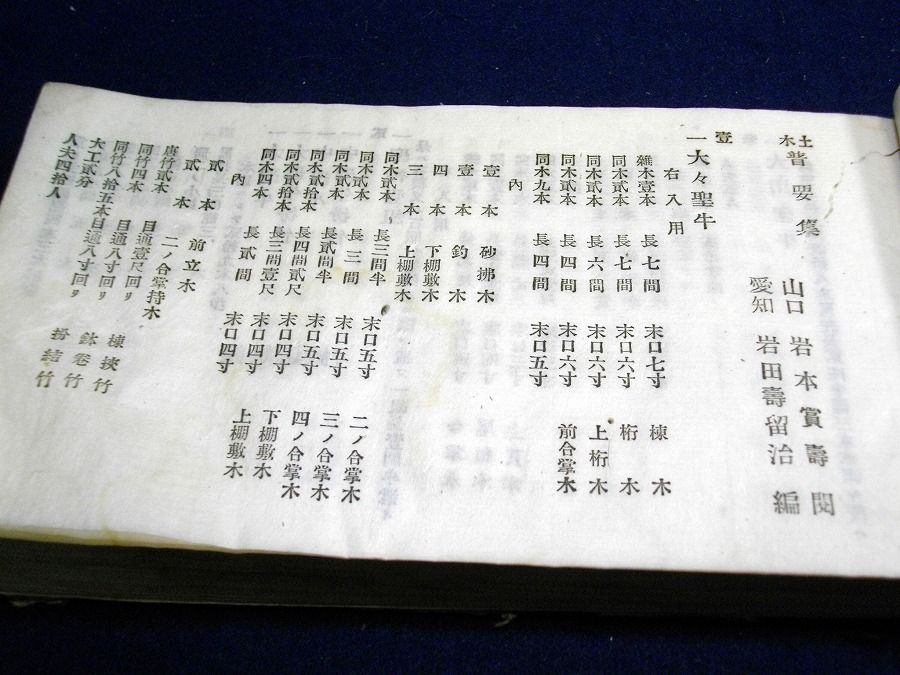 土木普要集
山口 岩本賞壽 閲
愛知 岩田壽留治 編
壹
一大々聖牛
右入用
雜木壹本 長七間 末口七寸 棟木
同木貳本 長七間 末口六寸 桁木
同木貳本 長六間 末口六寸 上桁木
同木貳本 長四間 末口六寸 前合掌木
同木九本 長四間 末口五寸
內
壹本 砂拂木
壹本 釣木
四本 下棚敷木
三本 上棚敷木
同木貳本 長三間半 末口五寸 二ノ合掌木
同木貳本 長三間 末口五寸 三ノ合掌木
同木貳本 長貳間半 末口五寸 四ノ合掌木
同木貳拾本 長四間貳尺 末口四寸 下棚敷木
同木貳拾本 長三間壹尺 末口四寸 上棚敷木
同木四本 長貳間 末口四寸
內
貳本 前立木
貳本 二ノ合掌持木
唐竹貳本 目通壹尺回リ 棟挾竹
同竹四本 目通八寸回リ 鉢卷竹
同竹八拾五本目通八寸回リ 結竹
大工貳分
人夫四拾人